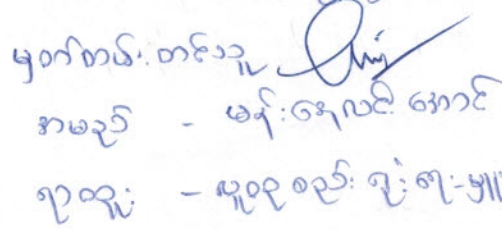 မှတ်တမ်းတင်သူ
အမည် - မန်းနေလင်းအောင်
ရာထူး - လူဝင်စည်းရုံးရေးမှူး